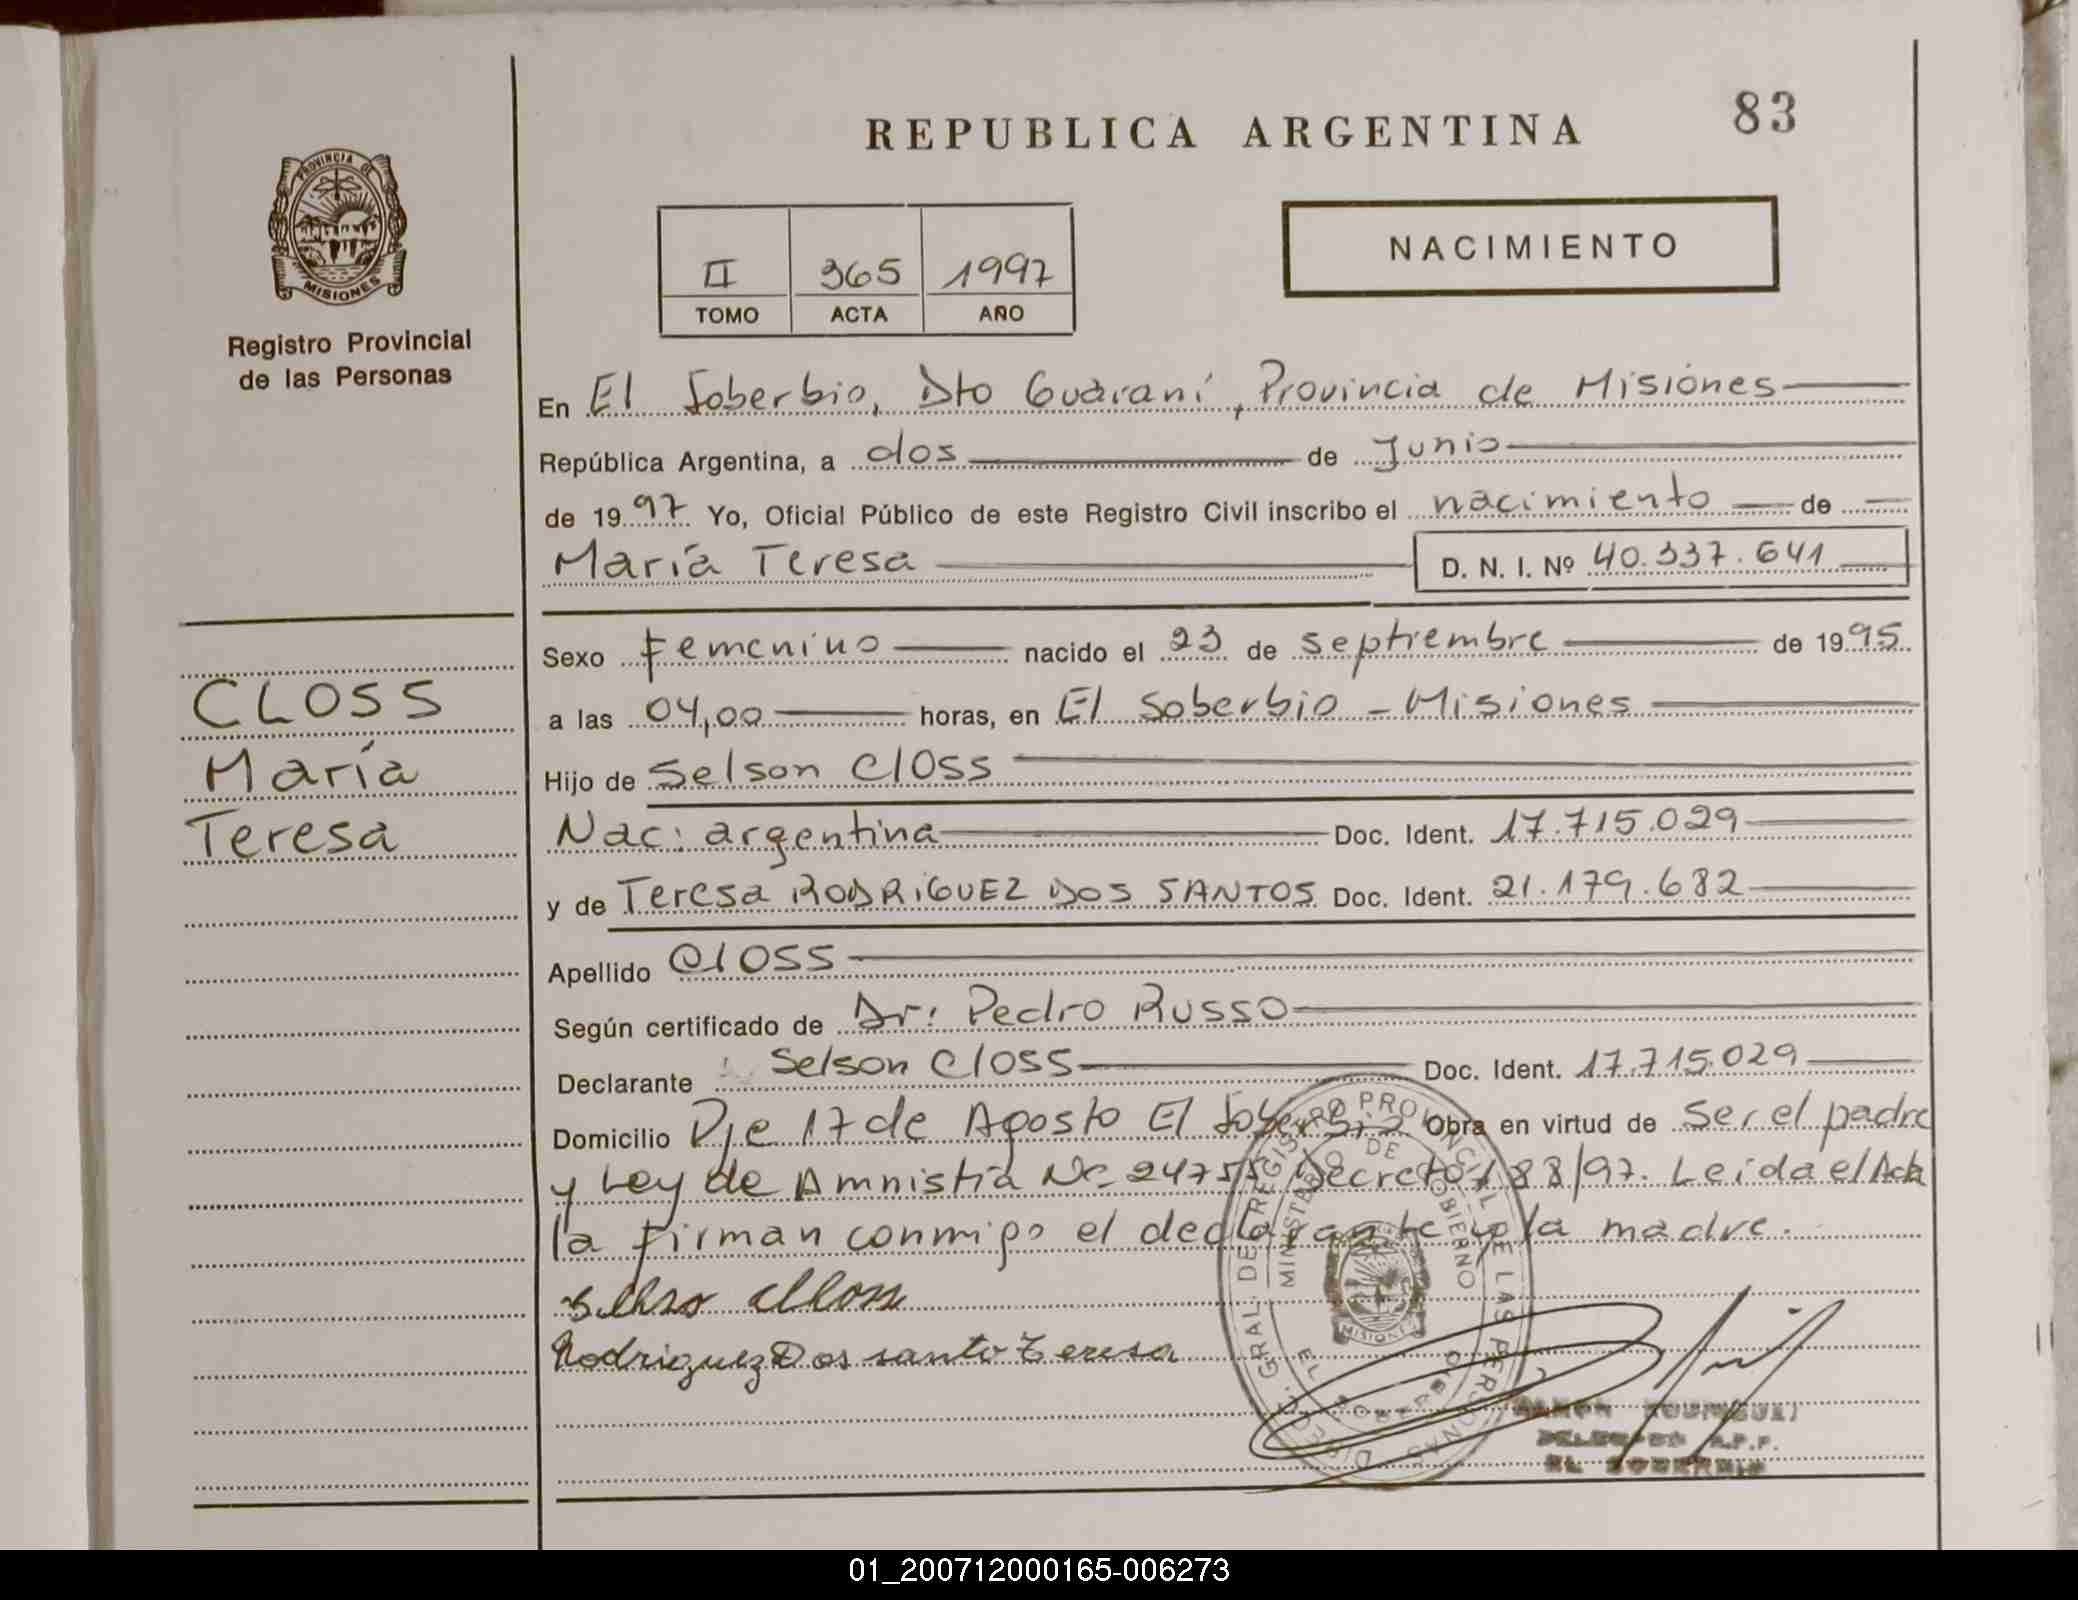 83
REPUBLICA ARGENTINA
PROVINCIA DE
MISIONES
NACIMIENTO
II 365 1997
TOMO ACTA AÑO
Registro Provincial
de las Personas
En El Soberbio, Dto Guaraní, Provincia de Misiones
República Argentina, a dos de Junio
de 1997 Yo, Oficial Público de este Registro Civil inscribo el nacimiento de
María Teresa D. N. I. Nº 40.337.641
Sexo Femenino nacido el 23 de septiembre de 1995
CLOSS
María
Teresa
a las 04,00 horas, en El Soberbio - Misiones
Hijo de Selson Closs
Nac: argentina Doc. Ident. 17.715.029
y de Teresa RODRIGUEZ DOS SANTOS Doc. Ident. 21.179.682
Apellido Closs
Según certificado de Dr: Pedro Russo
Declarante Selson Closs Doc. Ident. 17.715.029
Domicilio Pje 17 de Agosto El Soberbio Obra en virtud de Ser el padre
y Ley de Amnistía Nº 24755 Decreto 188/97. Leida el Acta
la firman conmigo el declarante y la madre.
Rodriguez Dos santo teresa
DIREC. GRAL. DE REGISTRO PROVINCIAL DE LAS PERSONAS
MINISTERIO DE GOBIERNO
EL SOBERBIO
MISIONES
R.P.P.
EL SOBERBIO
01_200712000165-006273